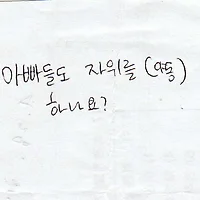 아빠들도 자위를 (야동)
하나요?